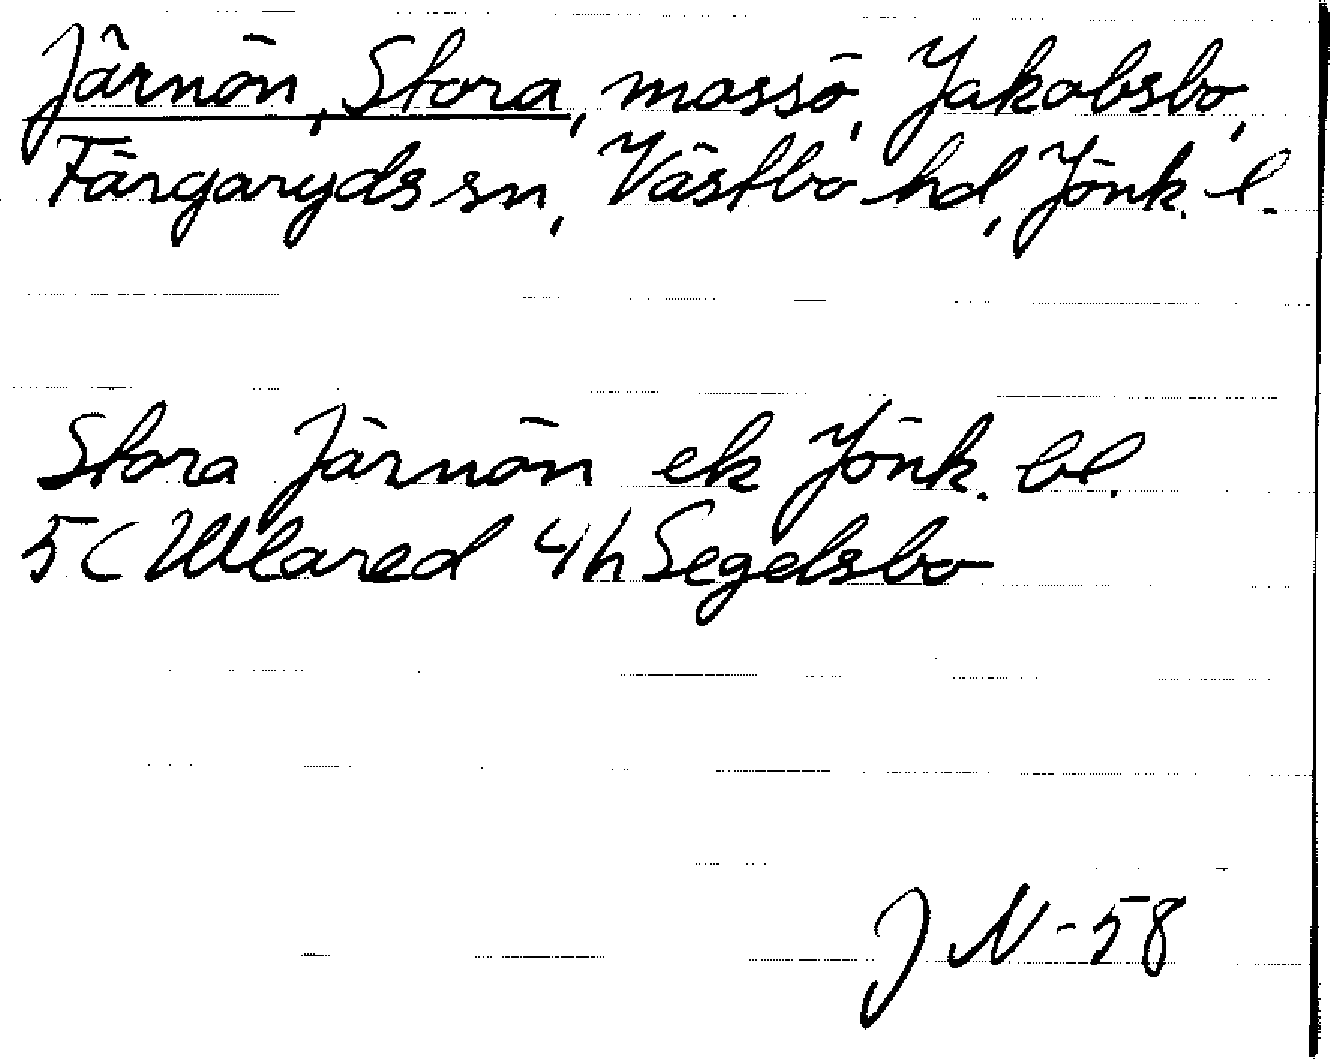 Järnön, Stora, mossö, Jakobsbo,
Färgaryds sn, Västbo hd, Jönk. l.
Stora Järnön ek Jönk. bl.
5C Ullared 4h Segelsbo
J N-58